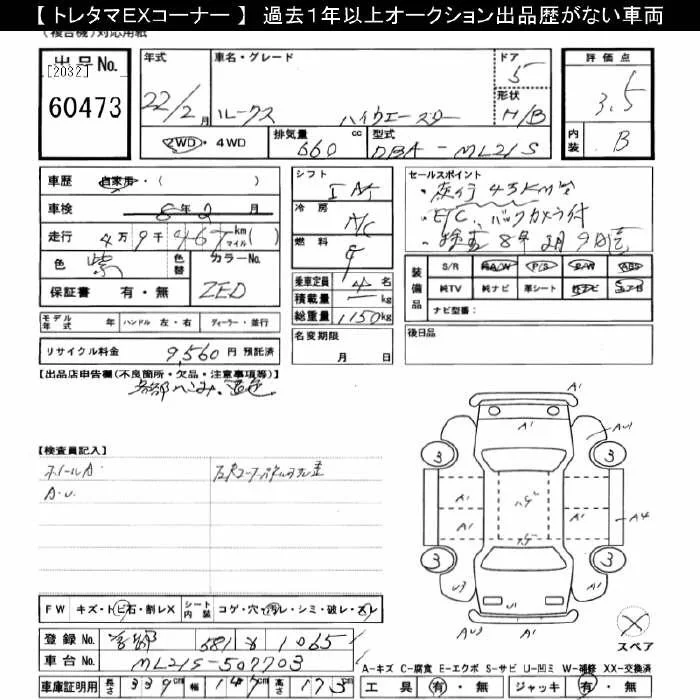 【 トレタマEXコーナー 】 過去1年以上オークション出品歴がない車両
(複合機)対応用紙
出品No. [2032] 60473
年式 22/2月
車名・グレード ルークス ハイウエースター
ドア 5
形状 H/B
評価点 3.5
内装 B
2WD・4WD
排気量 660 cc
型式 DBA-ML21S
車歴 自家用・( )
車検 8年2月
走行 4万9千467 km マイル( )
色 紫
色替
カラーNo. ZED
保証書 有・無
シフト IAT
冷房 A/C
燃料 G
乗車定員 4名
積載量 kg
総重量 1150kg
名変期限 月 日
セールスポイント
・走行49千km台
・ETC、バックカメラ付
・検査8年2月9日迄
装備品 S/R A/W P/S P/W ABS
純TV 純ナビ 革シート 社ナビ エアB
ナビ型番:
モデル年式 年 ハンドル 左・右 ディーラー・並行
後日品
リサイクル料金 9,560 円 預託済
【出品店申告欄(不良箇所・欠品・注意事項等)】
各部へこみ、退色
【検査員記入】
ホイールA
A.U.
FW キズ・トビ石・割レX
シート内装 コゲ・穴・汚レ・シミ・破レ・スレ
登録No. 京都 581 1065
車台No. ML21S-507703
車庫証明用 長さ 339cm 幅 147cm 高さ 173cm
A1
A1
AU1
3
3
A1
A1
ハゲ
A1
A1
A1
A4
ハゲ
3
3
U3
U1
A1
AU3
A1
スペア
A-キズ C-腐食 E-エクボ S-サビ U-凹ミ W-補修 XX-交換済
工具 有・無 ジャッキ 有・無